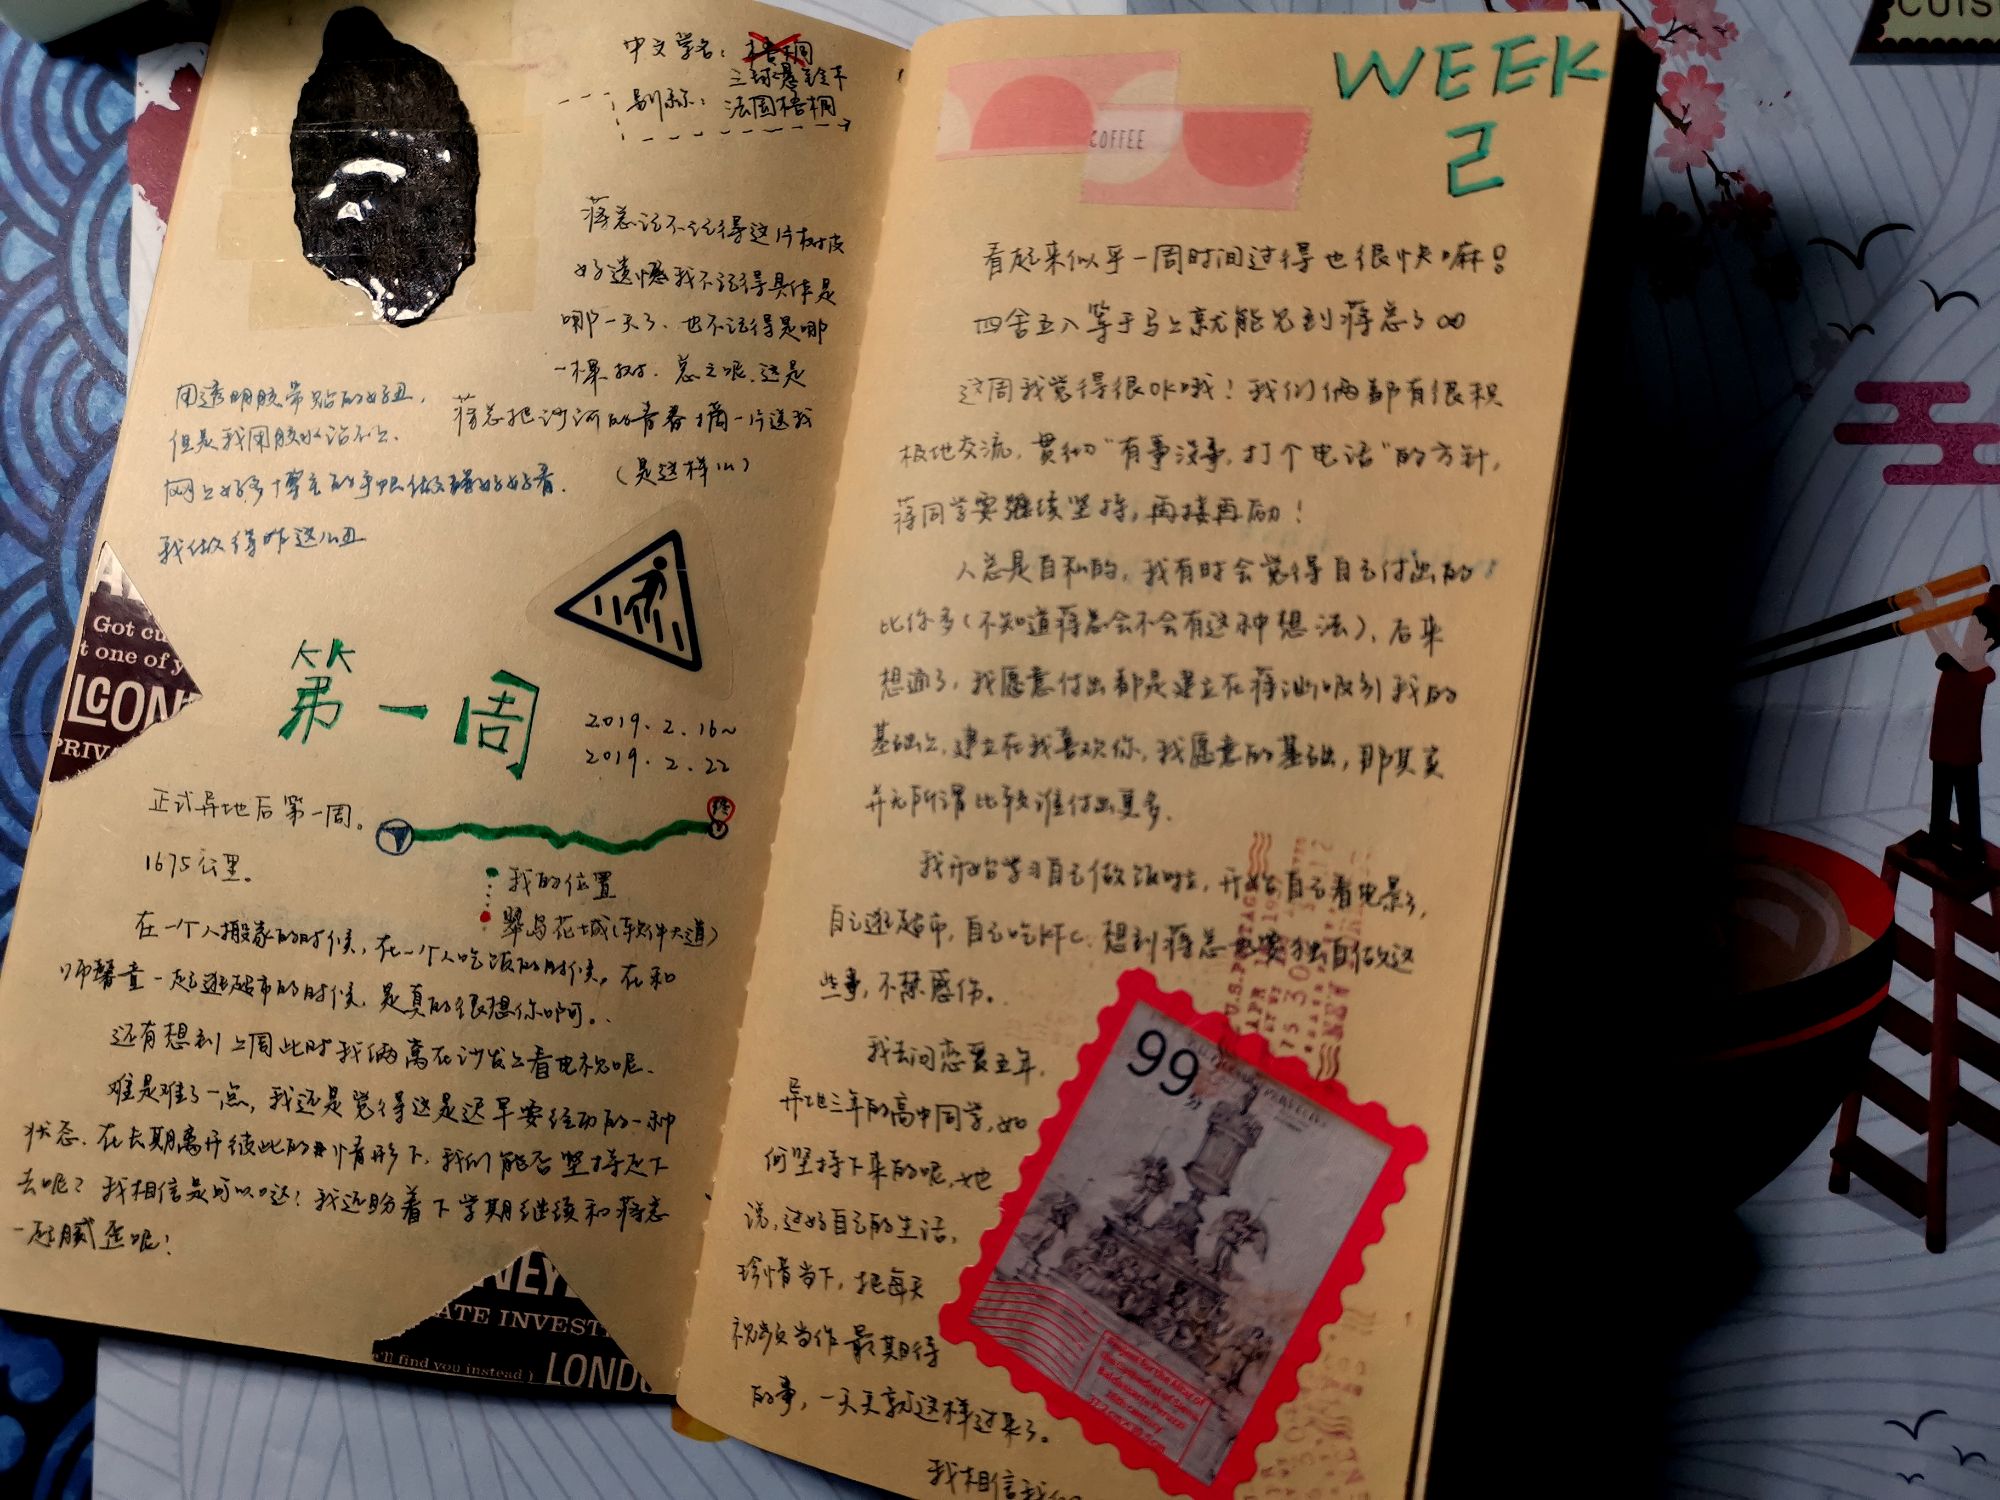 中文学名：梧桐
三球悬铃木
别称：法国梧桐
蒋总记不记得这片树皮
好遗憾我不记得具体是
哪一天了、也不记得是哪
一棵树。总之呢，这是
蒋总把沙河的青春摘一片送我
（是这样八）
用透明胶带贴的好丑，
但是我用胶水沾不上、
网上好多博主的手帐做得好好看.
我做得咋这么丑
Got cu
t one of y
LCON
PRIVA
第一周
2019.2.16~
2019.2.22
正式异地后第一周。
1675公里。
终
我的位置
翠岛花城(软件大道)
在一个人搬家的时候，在一个人吃饭的时候，在和
师馨童一起逛超市的时候，是真的很想你啊。
还有想到上周此时我俩窝在沙发上看电视呢、
难是难了一点，我还是觉得这是迟早要经历的一种
状态、在长期离开彼此的情形下，我们能否坚持走下
去呢？我相信是可以哒！我还盼着下学期继续和蒋总
一起腻歪呢！
NEY
ATE INVEST
'll find you instead)
LOND
WEEK
2
COFFEE
看起来似乎一周时间过得也很快嘛！
四舍五入等于马上就能见到蒋总了∞
这周我觉得很OK哦！我们俩都有很积
极地交流，贯彻“有事没事，打个电话”的方针，
蒋同学要继续坚持，再接再励！
人总是自私的，我有时会觉得自己付出的
比你多（不知道蒋总会不会有这种想法）、后来
想通了，我愿意付出都是建立在蒋汕吸引我的
基础上，建立在我喜欢你，我愿意的基础，那其实
并无所谓比较谁付出更多.
我开始学习自己做饭啦，开始自己看电影了，
自己逛超市，自己吃KFC、想到蒋总也要独自做这
些事，不禁感伤。
我去问恋爱五年，
异地三年的高中同学，如
何坚持下来的呢，她
说，过好自己的生活，
珍惜当下，把每天
视频当作最期待
的事，一天天就这样过来了。
我相信我们
U.S.POSTAGE
APR
1975
30
99分
Design for the Altar of
the Cathedral of Siena
Baldassarre Peruzzi
16th century
CUIS